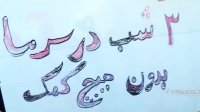 ۳ شب در سرما
بدون هیچ کمک